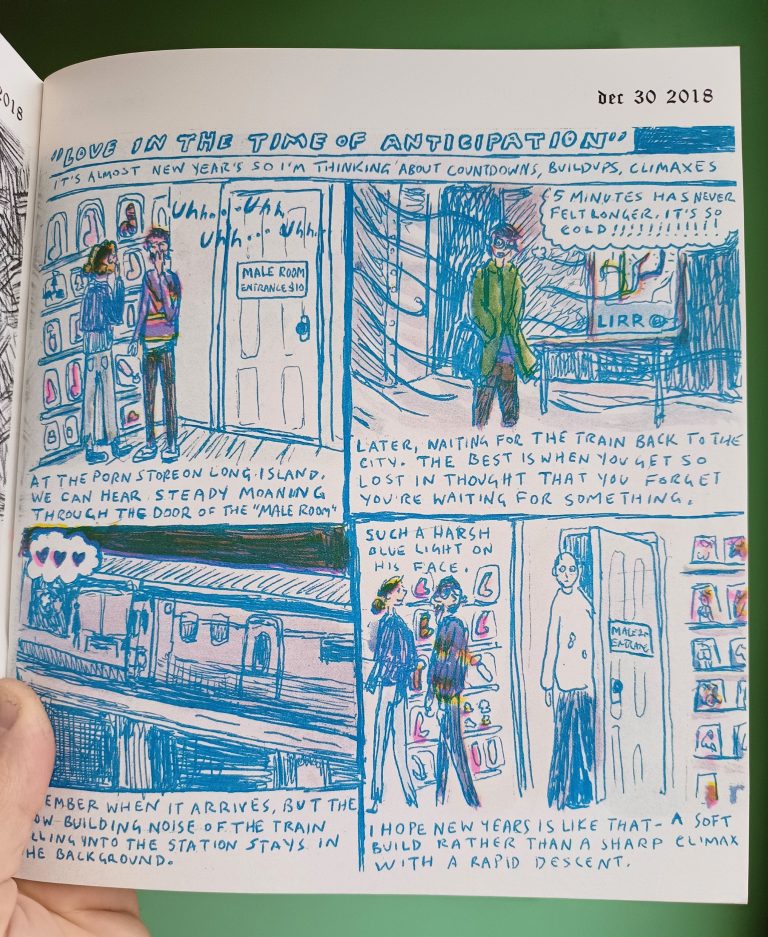 2018
dec 30 2018
"LOVE IN THE TIME OF ANTICIPATION"
IT'S ALMOST NEW YEAR'S SO I'M THINKING ABOUT COUNTDOWNS, BUILDUPS, CLIMAXES
Uhh...Uhh
Uhh...Uhh..
MALE ROOM
ENTRANCE $10
AT THE PORN STORE ON LONG ISLAND.
WE CAN HEAR STEADY MOANING
THROUGH THE DOOR OF THE "MALE ROOM"
5 MINUTES HAS NEVER
FELT LONGER. IT'S SO
COLD!!!!!!!!!!!!!
LIRR
LATER, WAITING FOR THE TRAIN BACK TO THE
CITY. THE BEST IS WHEN YOU GET SO
LOST IN THOUGHT THAT YOU FORGET
YOU'RE WAITING FOR SOMETHING.
EMBER WHEN IT ARRIVES, BUT THE
OW-BUILDING NOISE OF THE TRAIN
LLING INTO THE STATION STAYS IN
HE BACKGROUND.
SUCH A HARSH
BLUE LIGHT ON
HIS FACE.
MALE
I HOPE NEW YEARS IS LIKE THAT - A SOFT
BUILD RATHER THAN A SHARP CLIMAX
WITH A RAPID DESCENT.